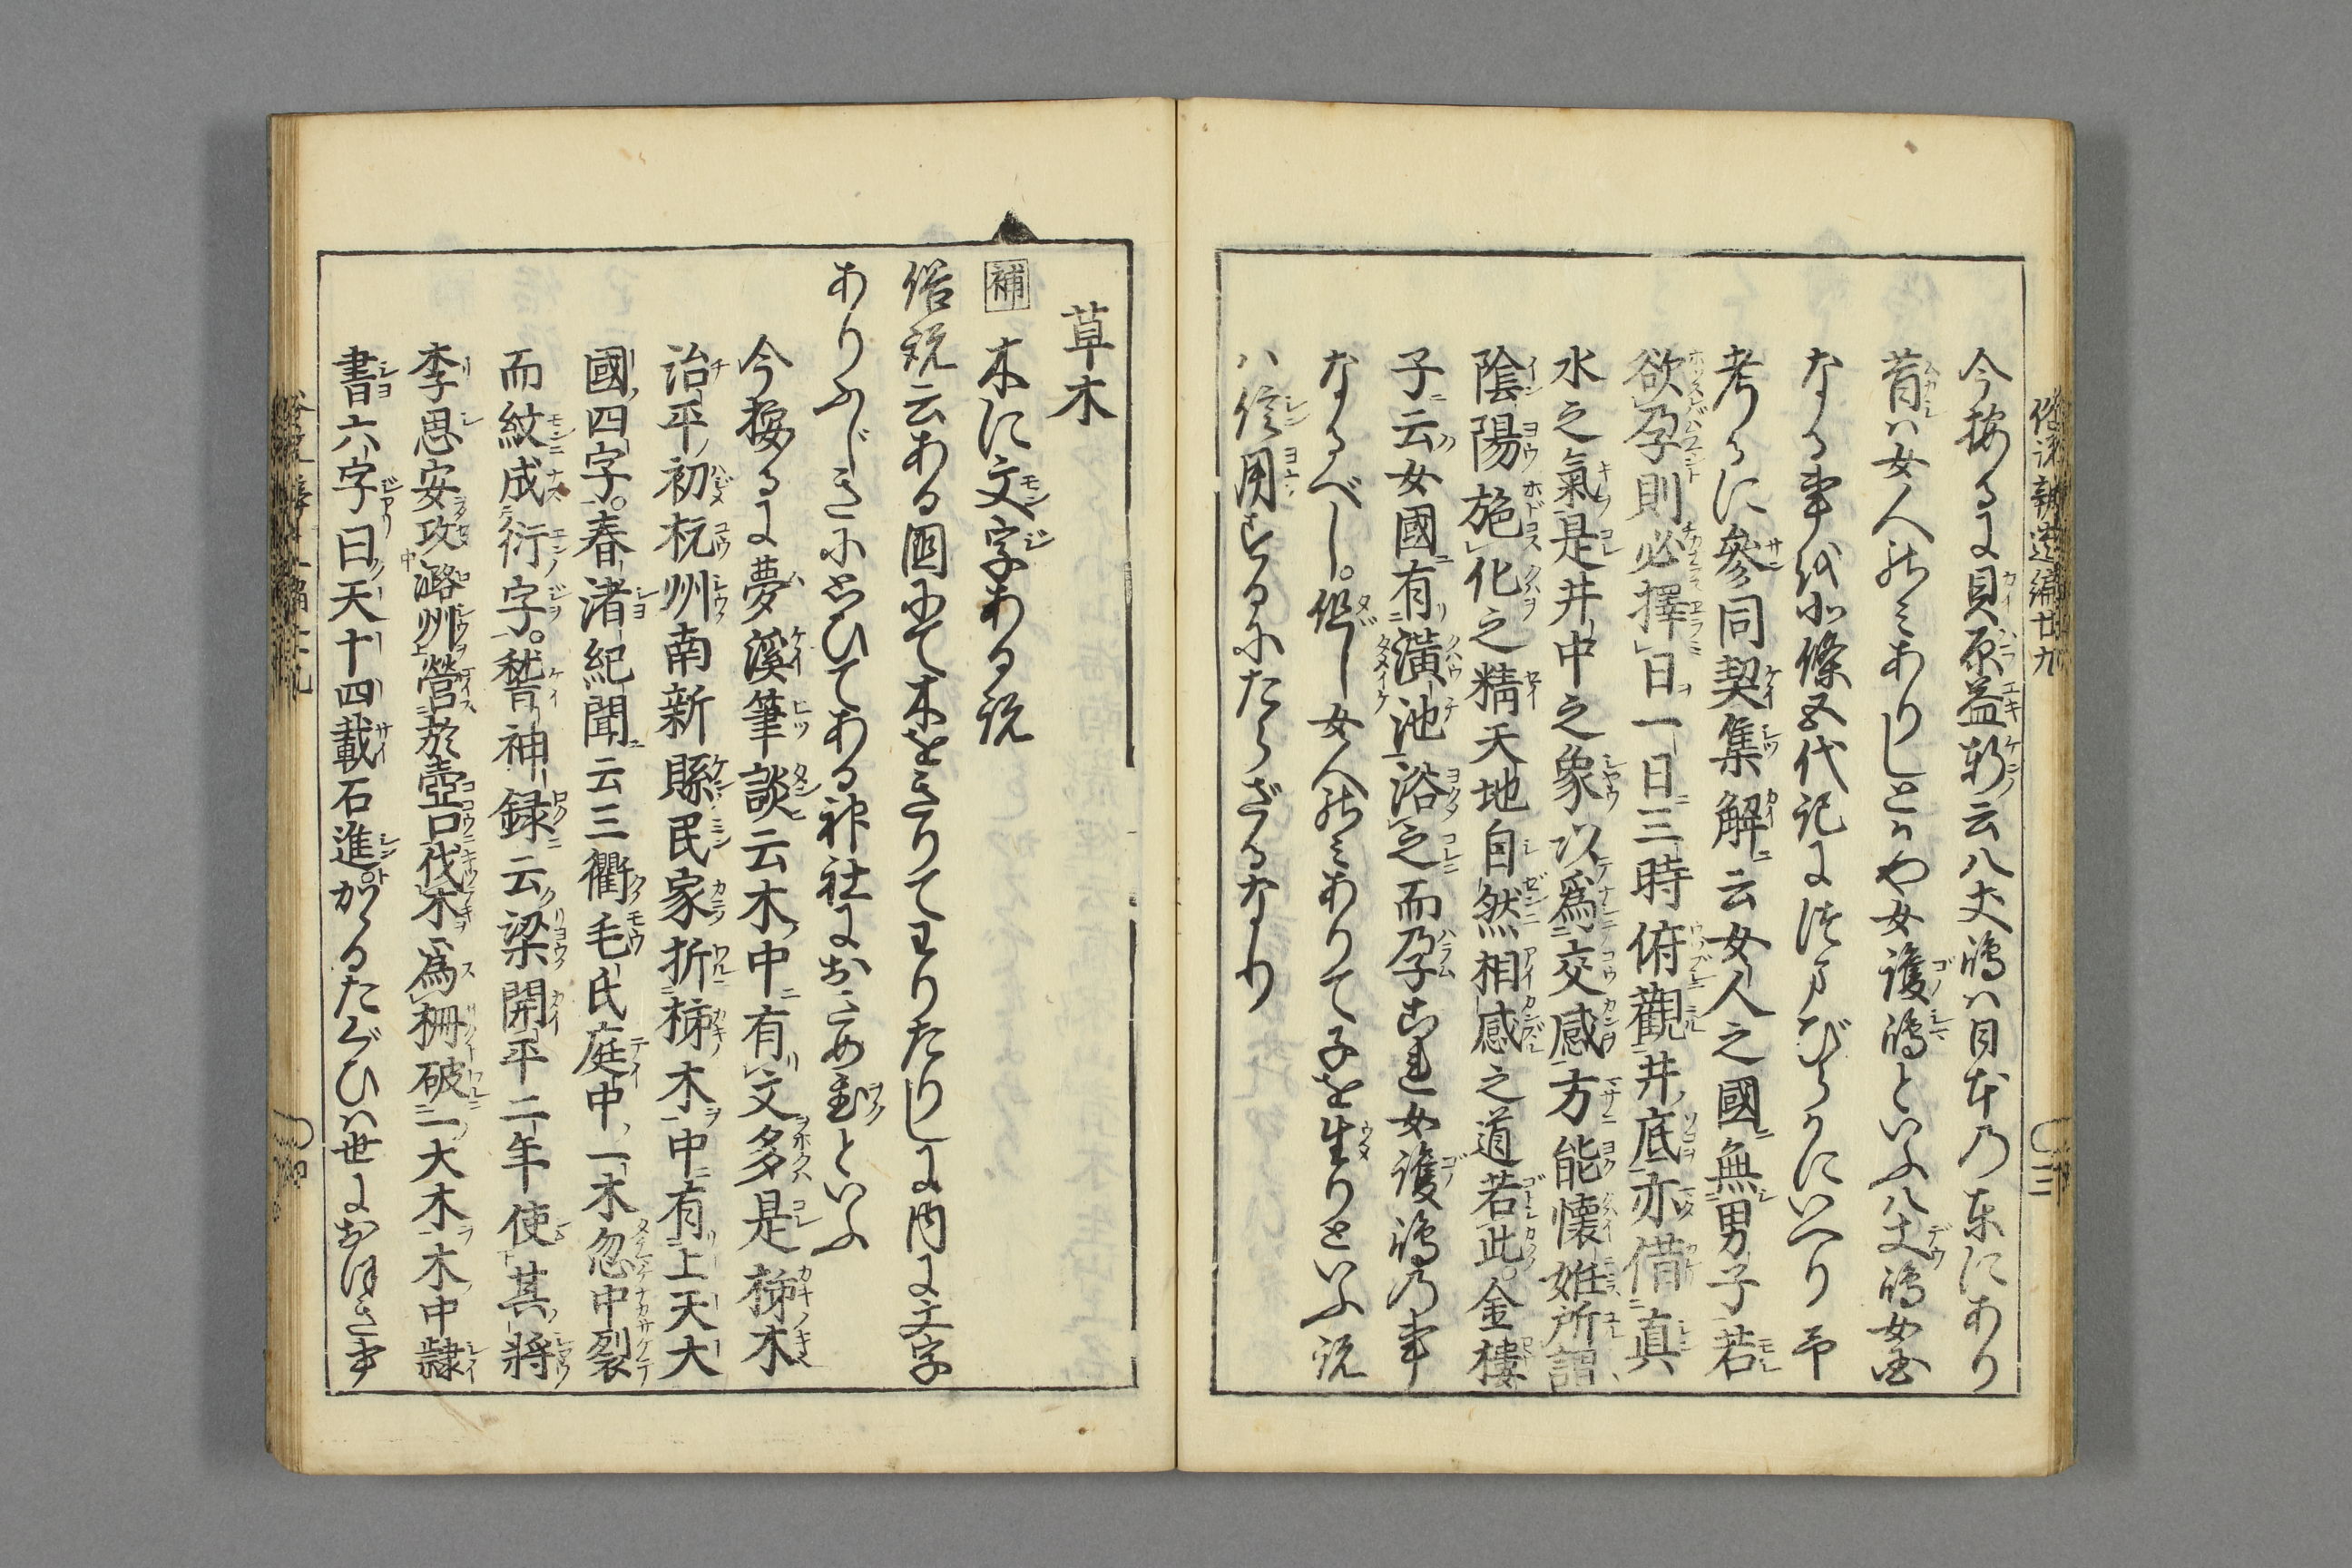 俗説辨遺編廿九
今按るに貝原益軒云八丈嶋ハ日本乃東にあり
昔ハ女人のミありしとかや女護嶋といふ八丈嶋女国
なる事北條五代記につまびらかにいへり予
考るに參同契集解云女人之國無男子若
欲孕則必擇日一日三時俯觀井底亦借真
水之氣是井中之象以爲交感方能懷姙所謂
陰陽施化之精天地自然相感之道若此。金樓
子云女國有潢池浴之而孕これ女護嶋乃事
なるべし。但し女人のミありて子を生りといふ説
ハ信用するにたらざるなり
三
草木
補 木に文字ある説
俗説云ある国にて木をきりてわりたりしに内に文字
ありふしぎにおもひてある神社におさめ置といふ
今按るに夢溪筆談云木中有文多是柹木
治平初杭州南新縣民家折柹木中有上天大
國四字。春渚紀聞云三衢毛氏庭中一木忽中裂
而紋成衍字。稽神録云梁開平二年使其將
李思安攻潞州營於壺口伐木爲柵破一大木木中隷
書六字曰天十四載石進。かゝるたぐひハ世におほき事